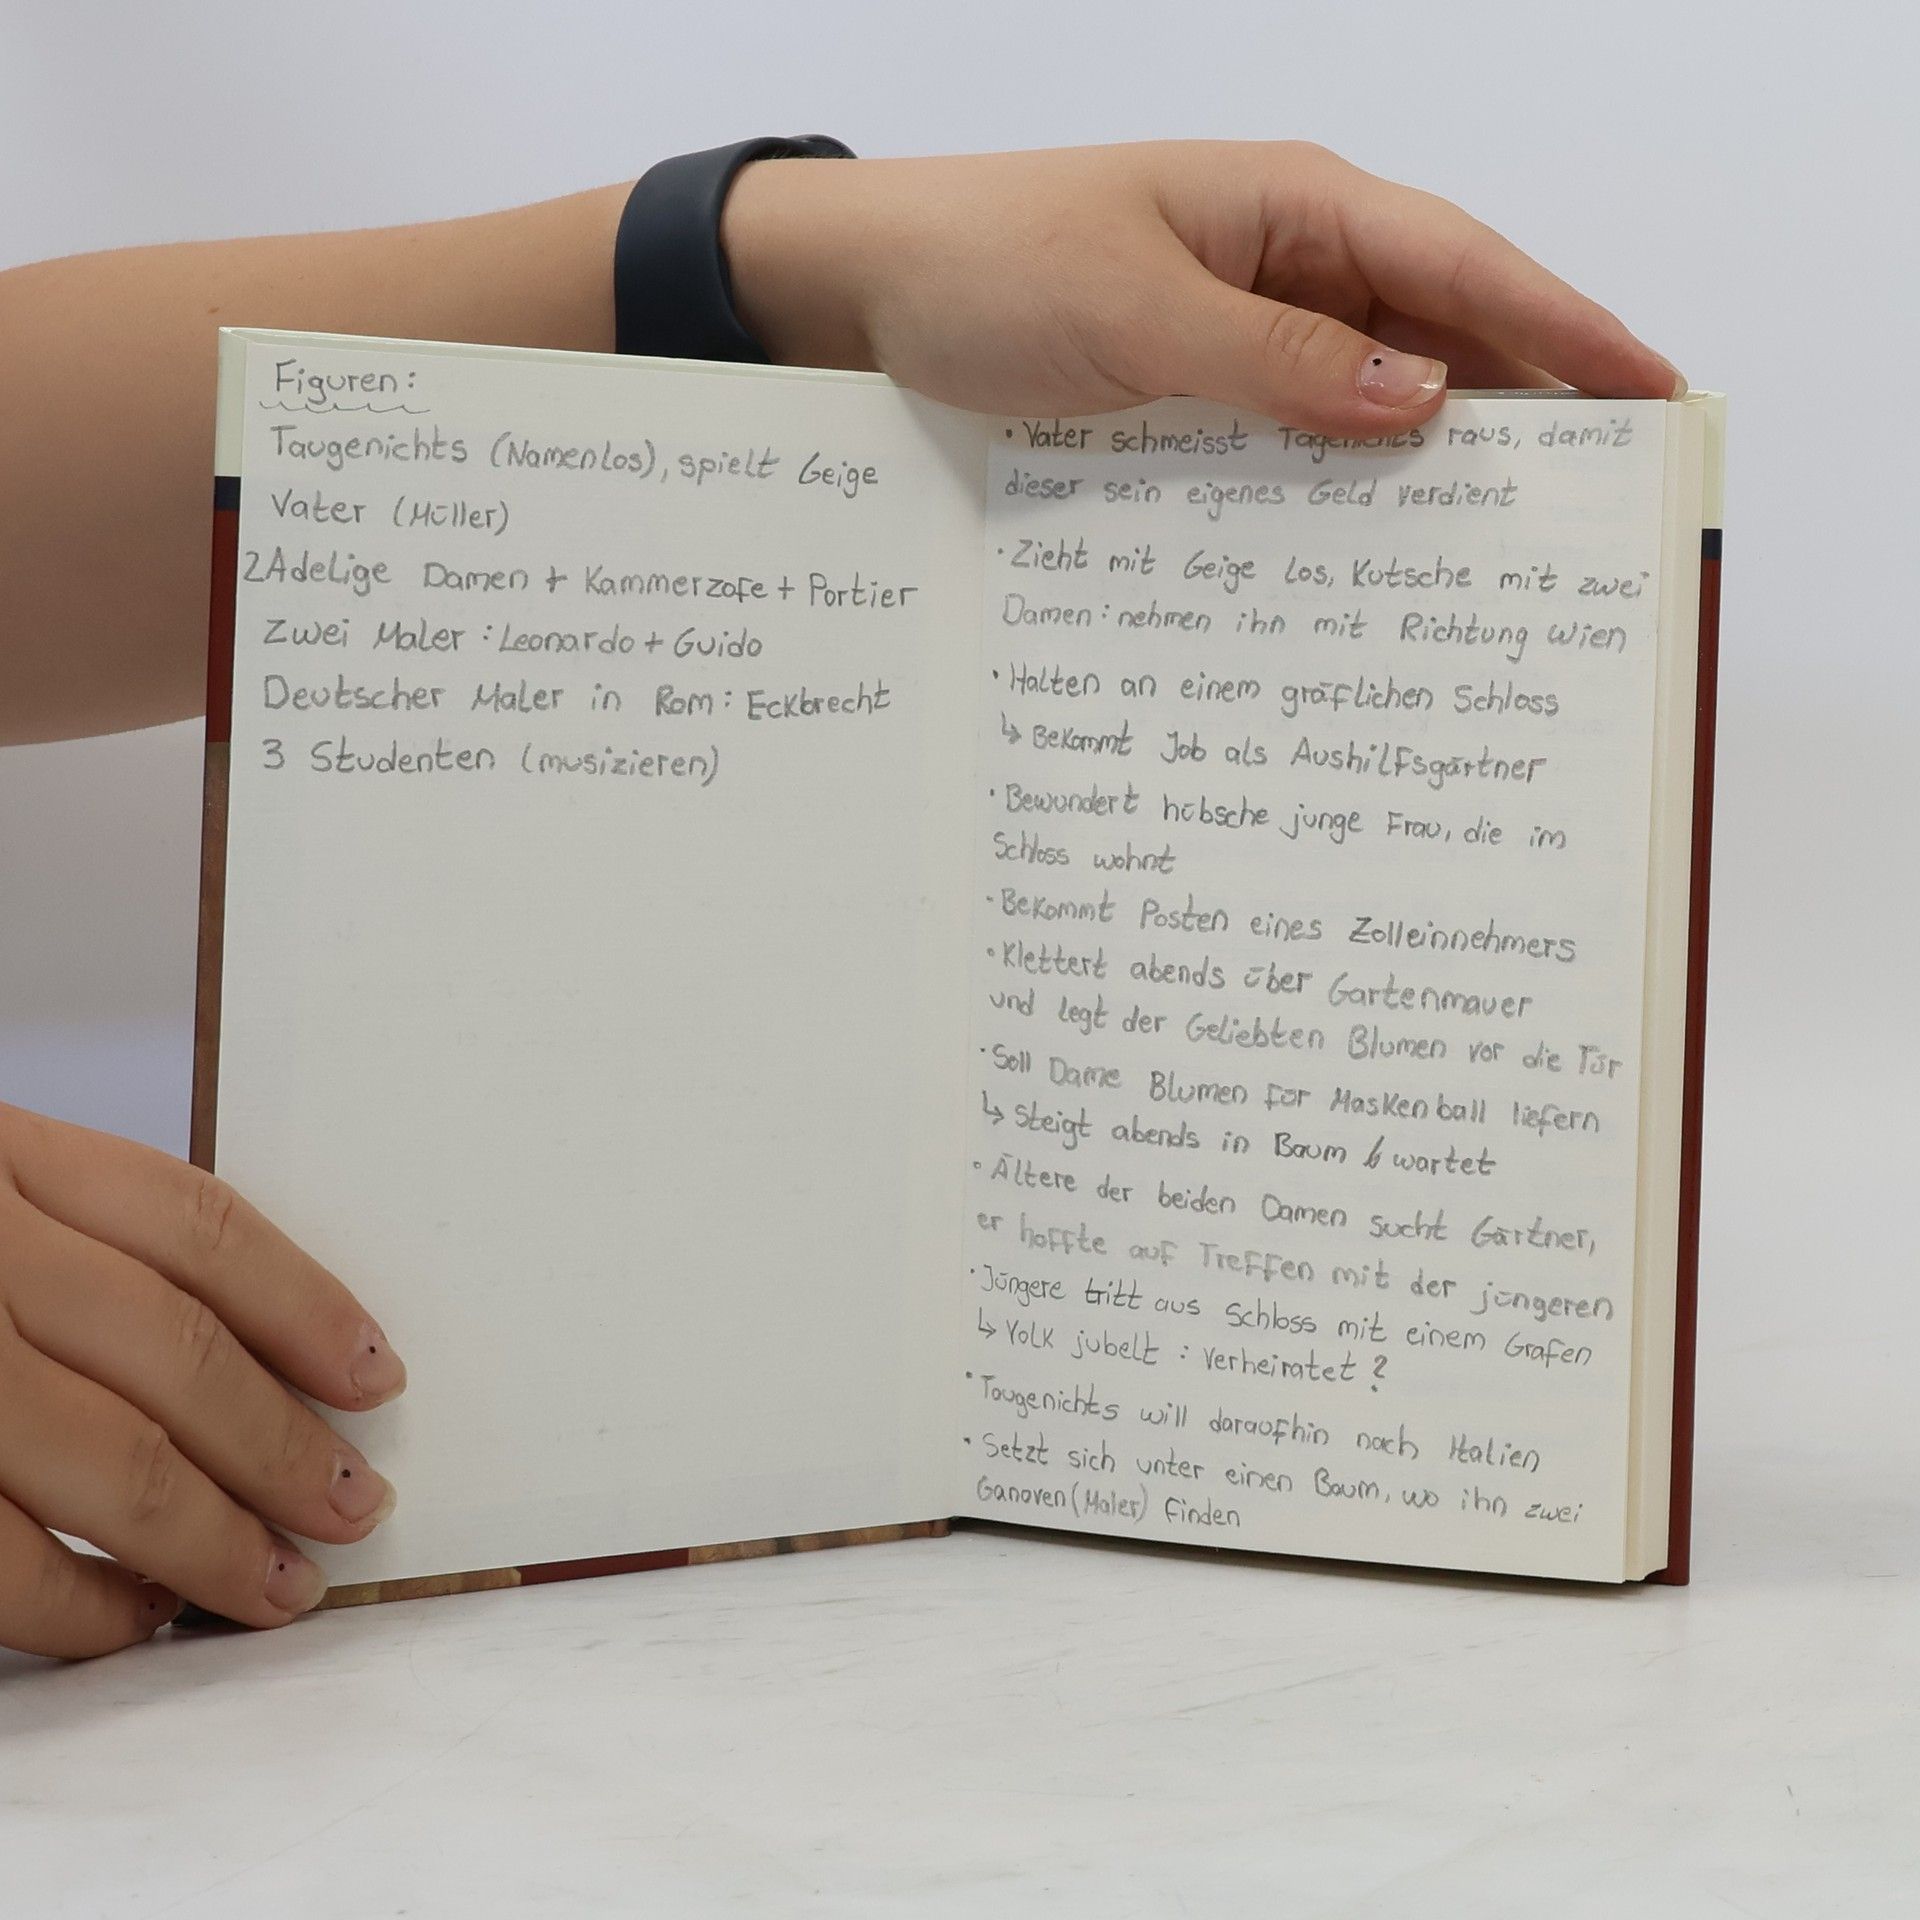 Figuren:
Taugenichts (Namenlos), spielt Geige
Vater (Müller)
2 Adelige Damen + Kammerzofe + Portier
Zwei Maler : Leonardo + Guido
Deutscher Maler in Rom : Eckbrecht
3 Studenten (musizieren)
• Vater schmeisst raus, damit
dieser sein eigenes Geld verdient
• Zieht mit Geige los, Kutsche mit zwei
Damen : nehmen ihn mit Richtung Wien
• Halten an einem gräflichen Schloss
↳ Bekommt Job als Aushilfsgärtner
• Bewundert hübsche junge Frau, die im
Schloss wohnt
• Bekommt Posten eines Zolleinnehmers
• Klettert abends über Gartenmauer
und legt der Geliebten Blumen vor die Tür
• Soll Dame Blumen für Maskenball liefern
↳ Steigt abends in Baum & wartet
• Ältere der beiden Damen sucht Gärtner,
er hoffte auf Treffen mit der jüngeren
• Jüngere tritt aus Schloss mit einem Grafen
↳ Volk jubelt : Verheiratet ?
• Taugenichts will daraufhin nach Italien
• Setzt sich unter einen Baum, wo ihn zwei
Ganoven (Maler) finden